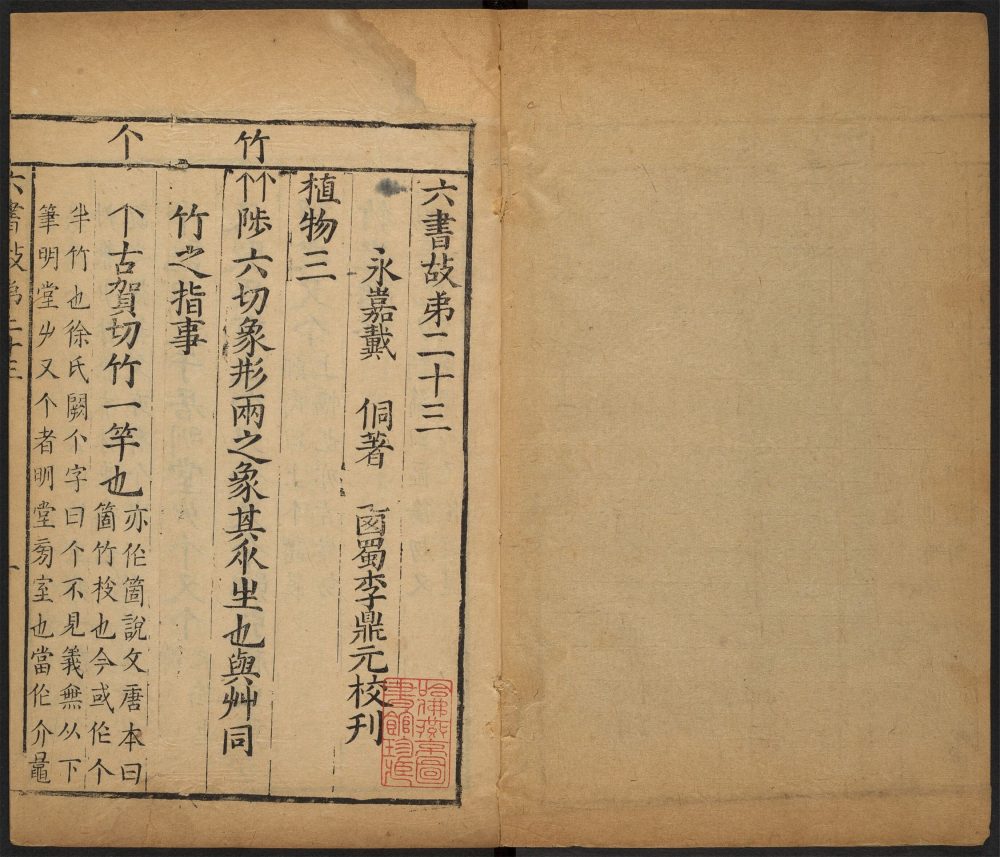 竹
个
六書故弟二十三
永嘉戴 侗著 卥蜀李鼎元校刊
植物三
陟六切象形兩之象其㐺生也與艸同
竹之指事
个古賀切竹一竿也
亦作箇說文唐本曰
箇竹枚也今或作个
半竹也徐氏闕个字曰个不見義無从下
筆明堂𠂇又个者明堂㫄室也當作介
六書故弟二十三
一
哈佛燕京圖
書館珍藏